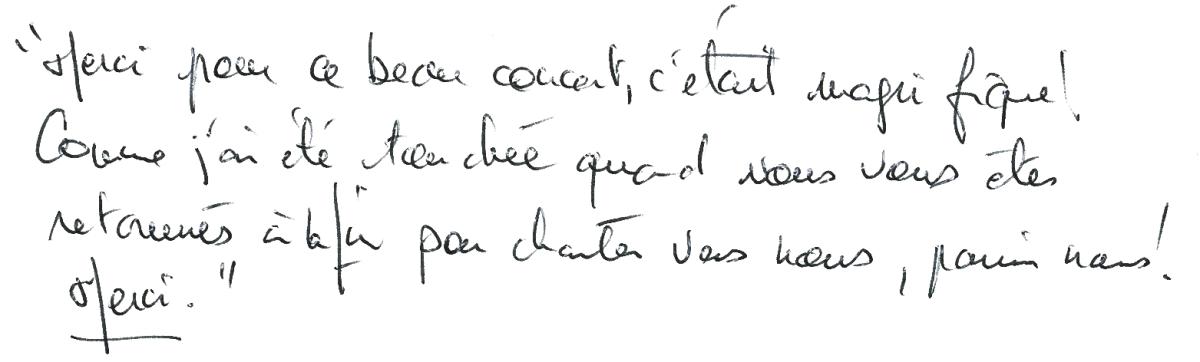 "Merci pour ce beau concert, c'était magnifique!
Comme j'ai été touchée quand vous vous êtes
retournés à la fin pour chanter vers nous, parmi nous!
Merci."